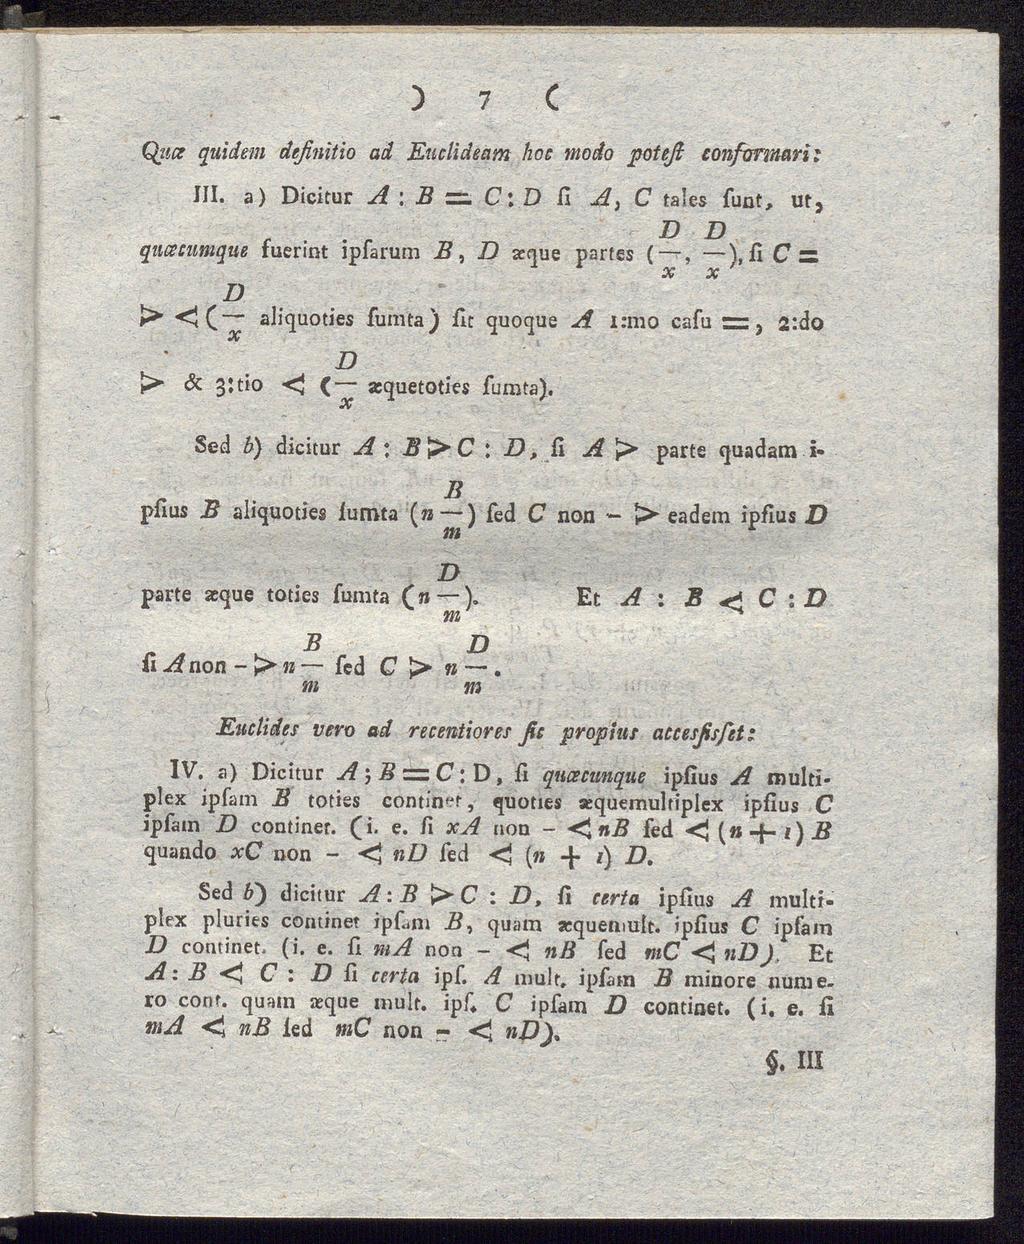 ) 7 (
Quæ quidem definitio ad Euclideam hoc modo poteſt conformari:
III. a) Dicitur A : B = C : D ſi A, C tales ſunt, ut,
quæcumque fuerint ipſarum B, D æque partes (D/x, D/x), ſi C =
> < (D/x aliquoties ſumta) ſit quoque A 1:mo caſu =, 2:do
> & 3:tio < (D/x æquetoties ſumta).
Sed b) dicitur A : B > C : D, ſi A > parte quadam i-
pſius B aliquoties ſumta (n B/m) ſed C non - > eadem ipſius D
parte æque toties ſumta (n D/m). Et A : B < C : D
ſi A non - > n B/m ſed C > n D/m.
Euclides vero ad recentiores ſic propius accesſisſet:
IV. a) Dicitur A ; B = C : D, ſi quæcunque ipſius A multi-
plex ipſam B toties continet, quoties æquemultiplex ipſius C
ipſam D continet. (i. e. ſi xA non - < nB ſed < (n + 1) B
quando xC non - < nD ſed < (n + 1) D.
Sed b) dicitur A : B > C : D, ſi certa ipſius A multi-
plex pluries continet ipſam B, quam æquemult. ipſius C ipſam
D continet. (i. e. ſi mA non - < nB ſed mC < nD). Et
A : B < C : D ſi certa ipſ. A mult. ipſam B minore nume-
ro cont. quam æque mult. ipſ. C ipſam D continet. (i. e. ſi
mA < nB ſed mC non - < nD).
§. III